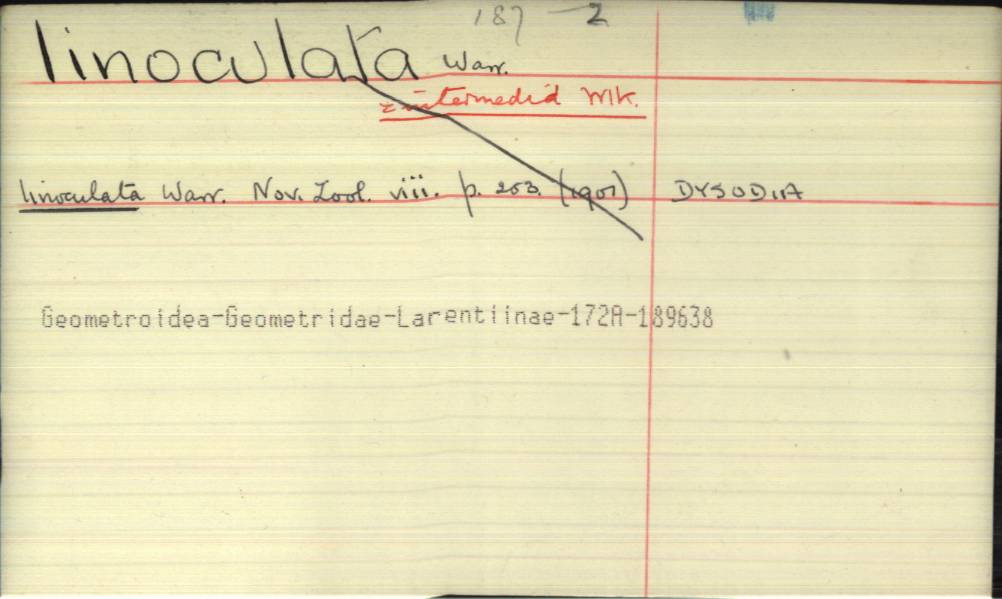 187 - 2
linoculata Warr.
= intermedia Wlk.
linoculata Warr. Nov. Zool. viii. p. 203. (1901) DYSODIA
Geometroidea-Geometridae-Larentiinae-172A-189638